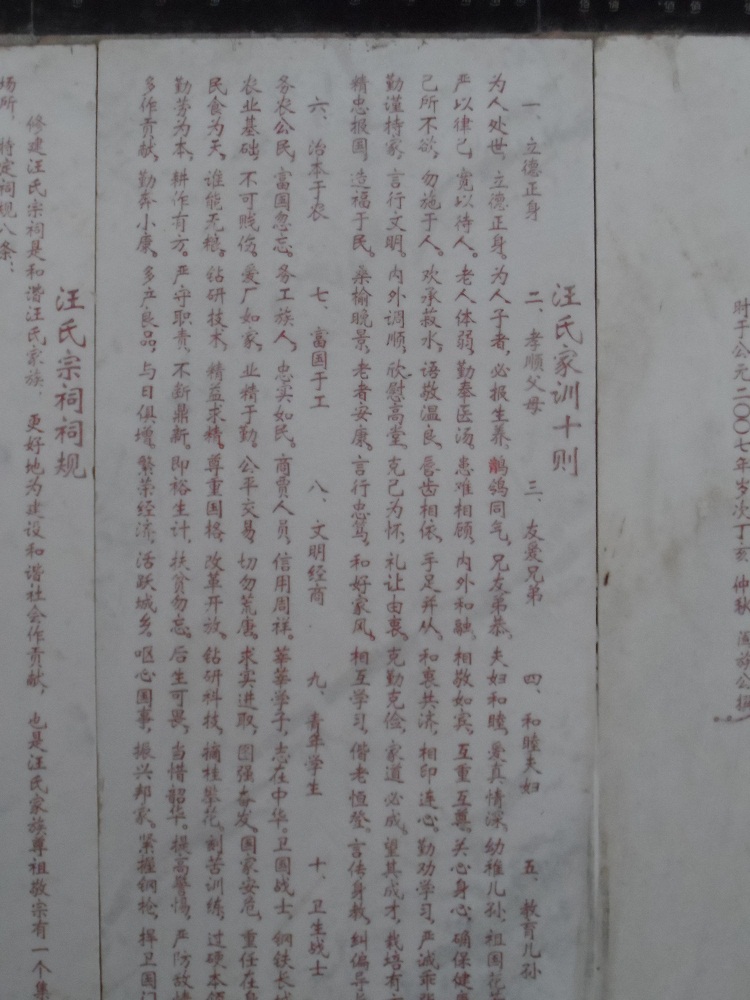 时于公元二〇〇七年岁次丁亥仲秋
汪氏家训十则
一、立德正身 二、孝顺父母 三、友爱兄弟 四、和睦夫妇 五、教育儿孙
为人处世，立德正身。为人子者，必报生养，鹡鸰同气，兄友弟恭，夫妇和睦，爱真情深，幼稚儿孙，祖国花
严以律己，宽以待人。老人体弱，勤奉医汤，患难相顾，内外和融，相敬如宾，互重互尊。关心身心，确保健康
己所不欲，勿施于人。欢承菽水，语敬温良，唇齿相依，手足并从，和衷共济，相印连心。勤劝学习，严诫乖张
勤谨持家，言行文明，内外调顺，欣慰高堂，克己为怀，礼让由衷，克勤克俭，家道必成。望其成才，栽培有
精忠报国，造福于民。桑榆晚景，老者安康。言行忠笃，和好家风，相互学习，偕老恒登。言传身教，纠偏导
六、治本于农 七、富国于工 八、文明经商 九、青年学生 十、卫生战士
务农公民，富国忽忘。务工族人，忠实如民。商贾人员，信用周祥。莘莘学子，志在中华。卫国战士，钢铁长城
农业基础，不可贱伤。爱厂如家，业精于勤。公平交易，切勿荒唐。求实进取，图强奋发。国家安危，重任在身
民食为天，谁能无粮。钻研技术，精益求精。尊重国格，改革开放。钻研科技，摘桂攀花。刻苦训练，过硬本领
勤劳为本，耕作有方。严守职责，不断鼎新。即裕生计，扶贫勿忘。后生可畏，当惜韶华。提高警惕，严防敌情
多作贡献，勤奔小康。多产良品，与日俱增。繁荣经济，活跃城乡。呕心国事，振兴邦家。紧握钢枪，捍卫国门
汪氏宗祠祠规
修建汪氏宗祠是和谐汪氏家族，更好地为建设和谐社会作贡献，也是汪氏家族尊祖敬宗有一个集
场所，特定祠规八条：